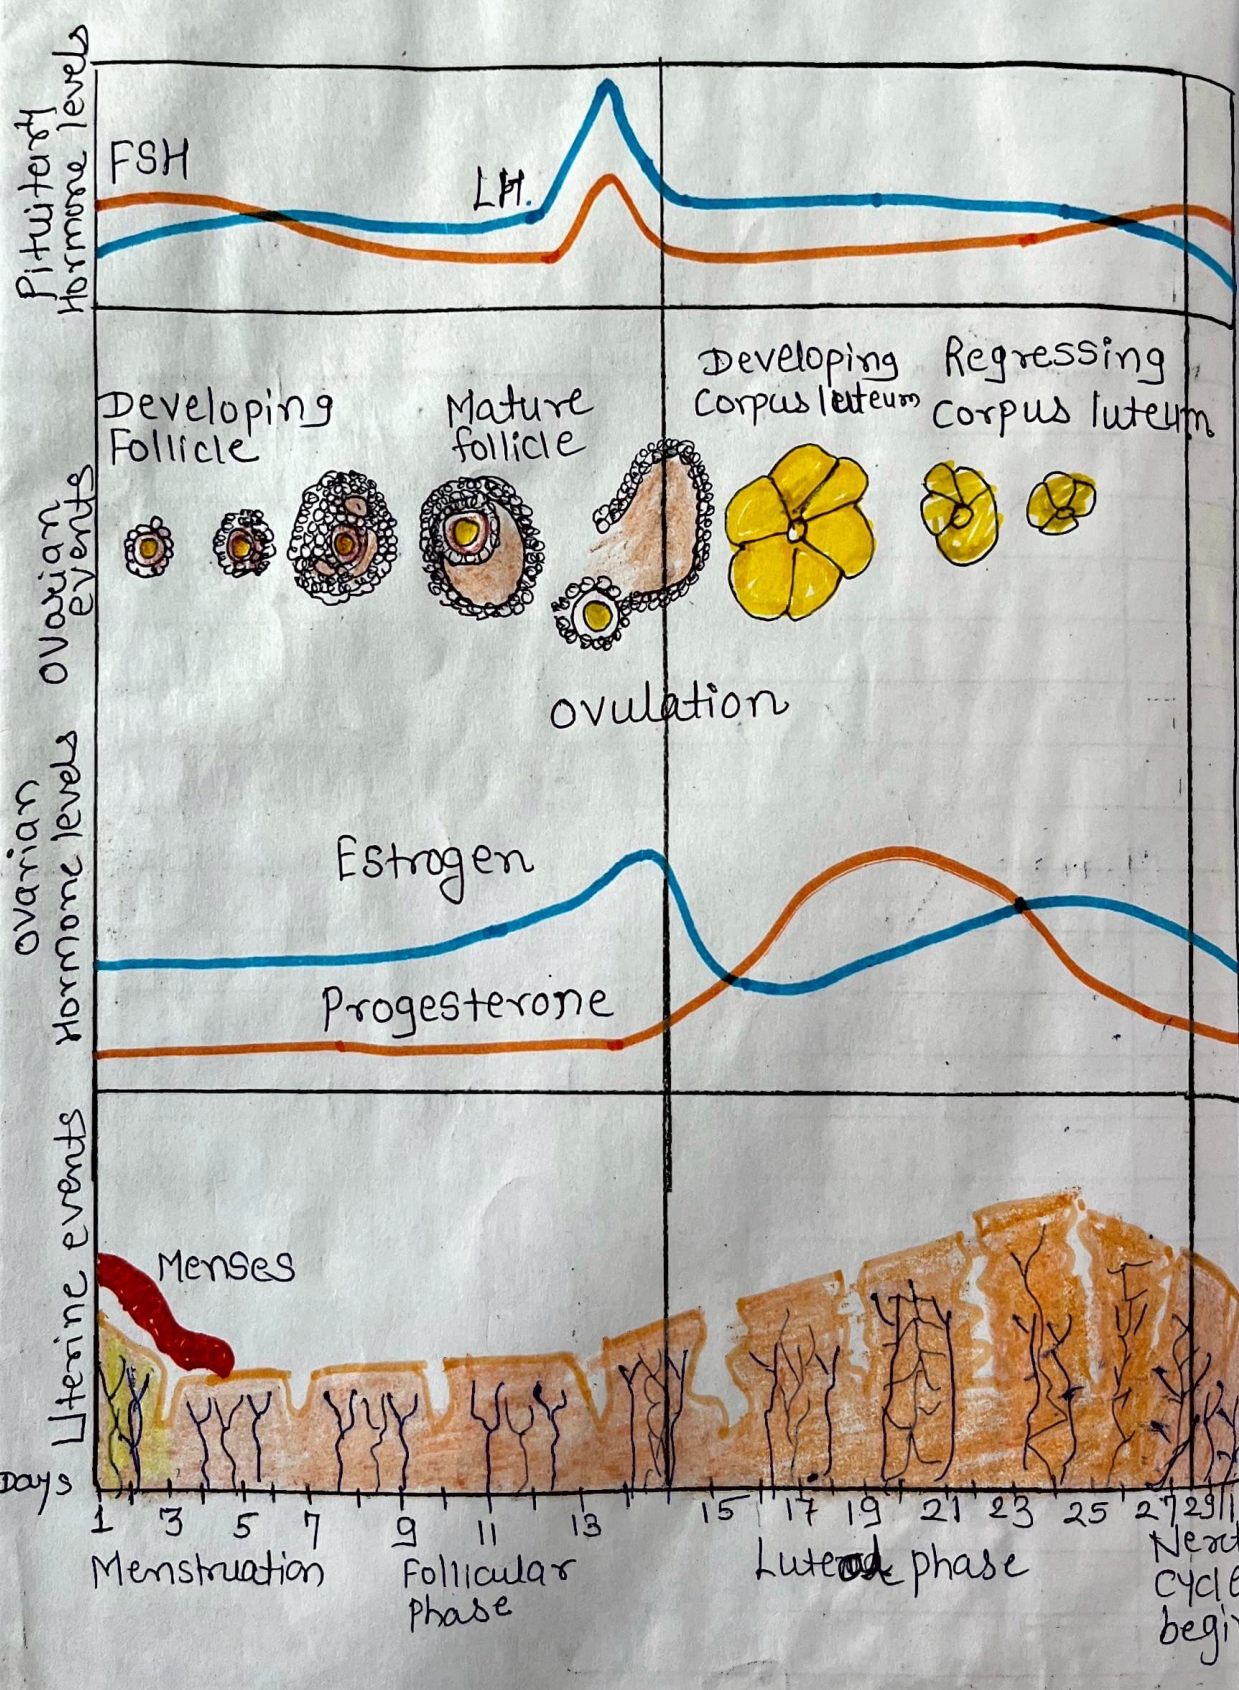 Pituitary
Hormone levels
FSH
LH.
Ovarian
events
Developing
Follicle
Mature
follicle
Developing
Corpus luteum
Regressing
Corpus luteum
Ovulation
Ovarian
Hormone levels
Estrogen
Progesterone
Uterine events
Menses
Days
1 3 5 7 9 11 13 15 17 19 21 23 25 27 29/1
Menstruation
Follicular
Phase
phase
Cycle